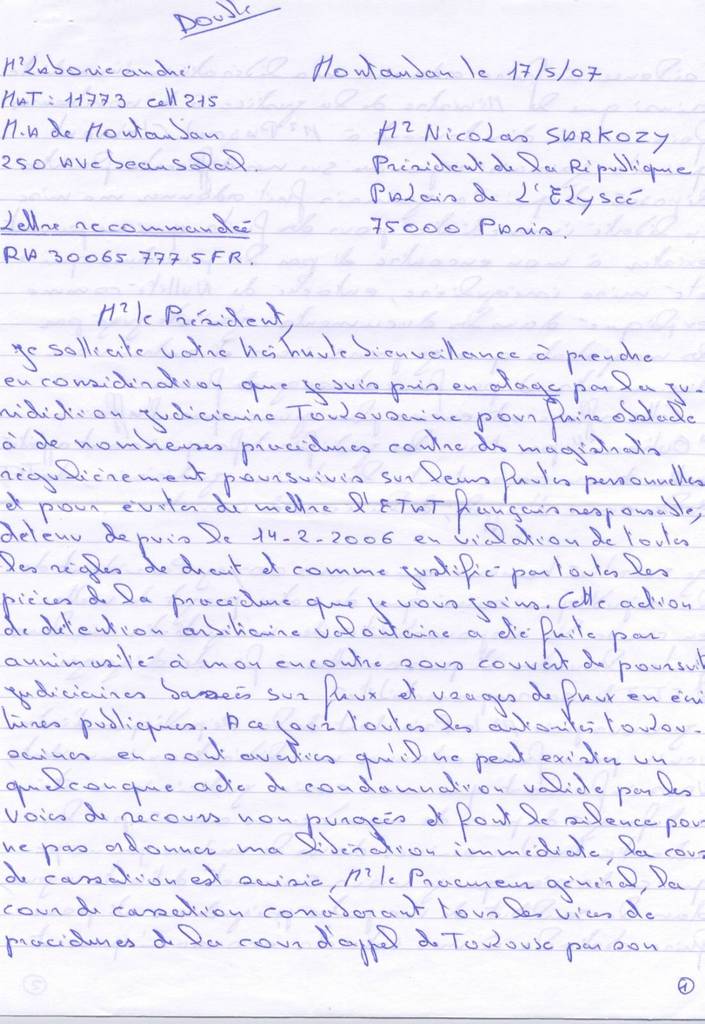 Double
Mr Laborie andré Montauban le 17/5/07
MAT: 11773 cell 215
M.A de Montauban Mr NicoLas SARKOZY
250 Ave beausoleil. Président de la République
PaLais de L'ELyseé
Lettre recommandeé 75000 Paris.
RA 30065 777 5FR.
Mr le Président,
Je sollicite votre très haute bienveillance à prendre
en considération que je suis pris en otage par la ju-
ridiction judiciaire Toulousaine pour faire obstacle
à de nombreuses procédures contre des magistrats
régulièrement poursuivis sur leurs fautes personnelles
et pour éviter de mettre l'ETAT français responsable,
détenu depuis le 14-2-2006 en violation de toutes
les règles de droit et comme justifié par toutes les
pièces de la procédure que je vous joins. Cette action
de détention arbitraire volontaire a été faite par
animosité à mon encontre sous couvert de poursuit
judiciaires baseés sur faux et usages de faux en écri
tures publiques. A ce jour toutes les autorités toulou-
saines en sont averties qu'il ne peut exister un
quelconque acte de condamnation valide par les
voies de recours non purgeés et font le silence pour
ne pas ordonner ma libération immédiate, la cour
de cassation est saisie, Mr le Procureur général, la
cour de cassation corroborant tous les vices de
procédures de la cour d'appel de Toulouse par son
1